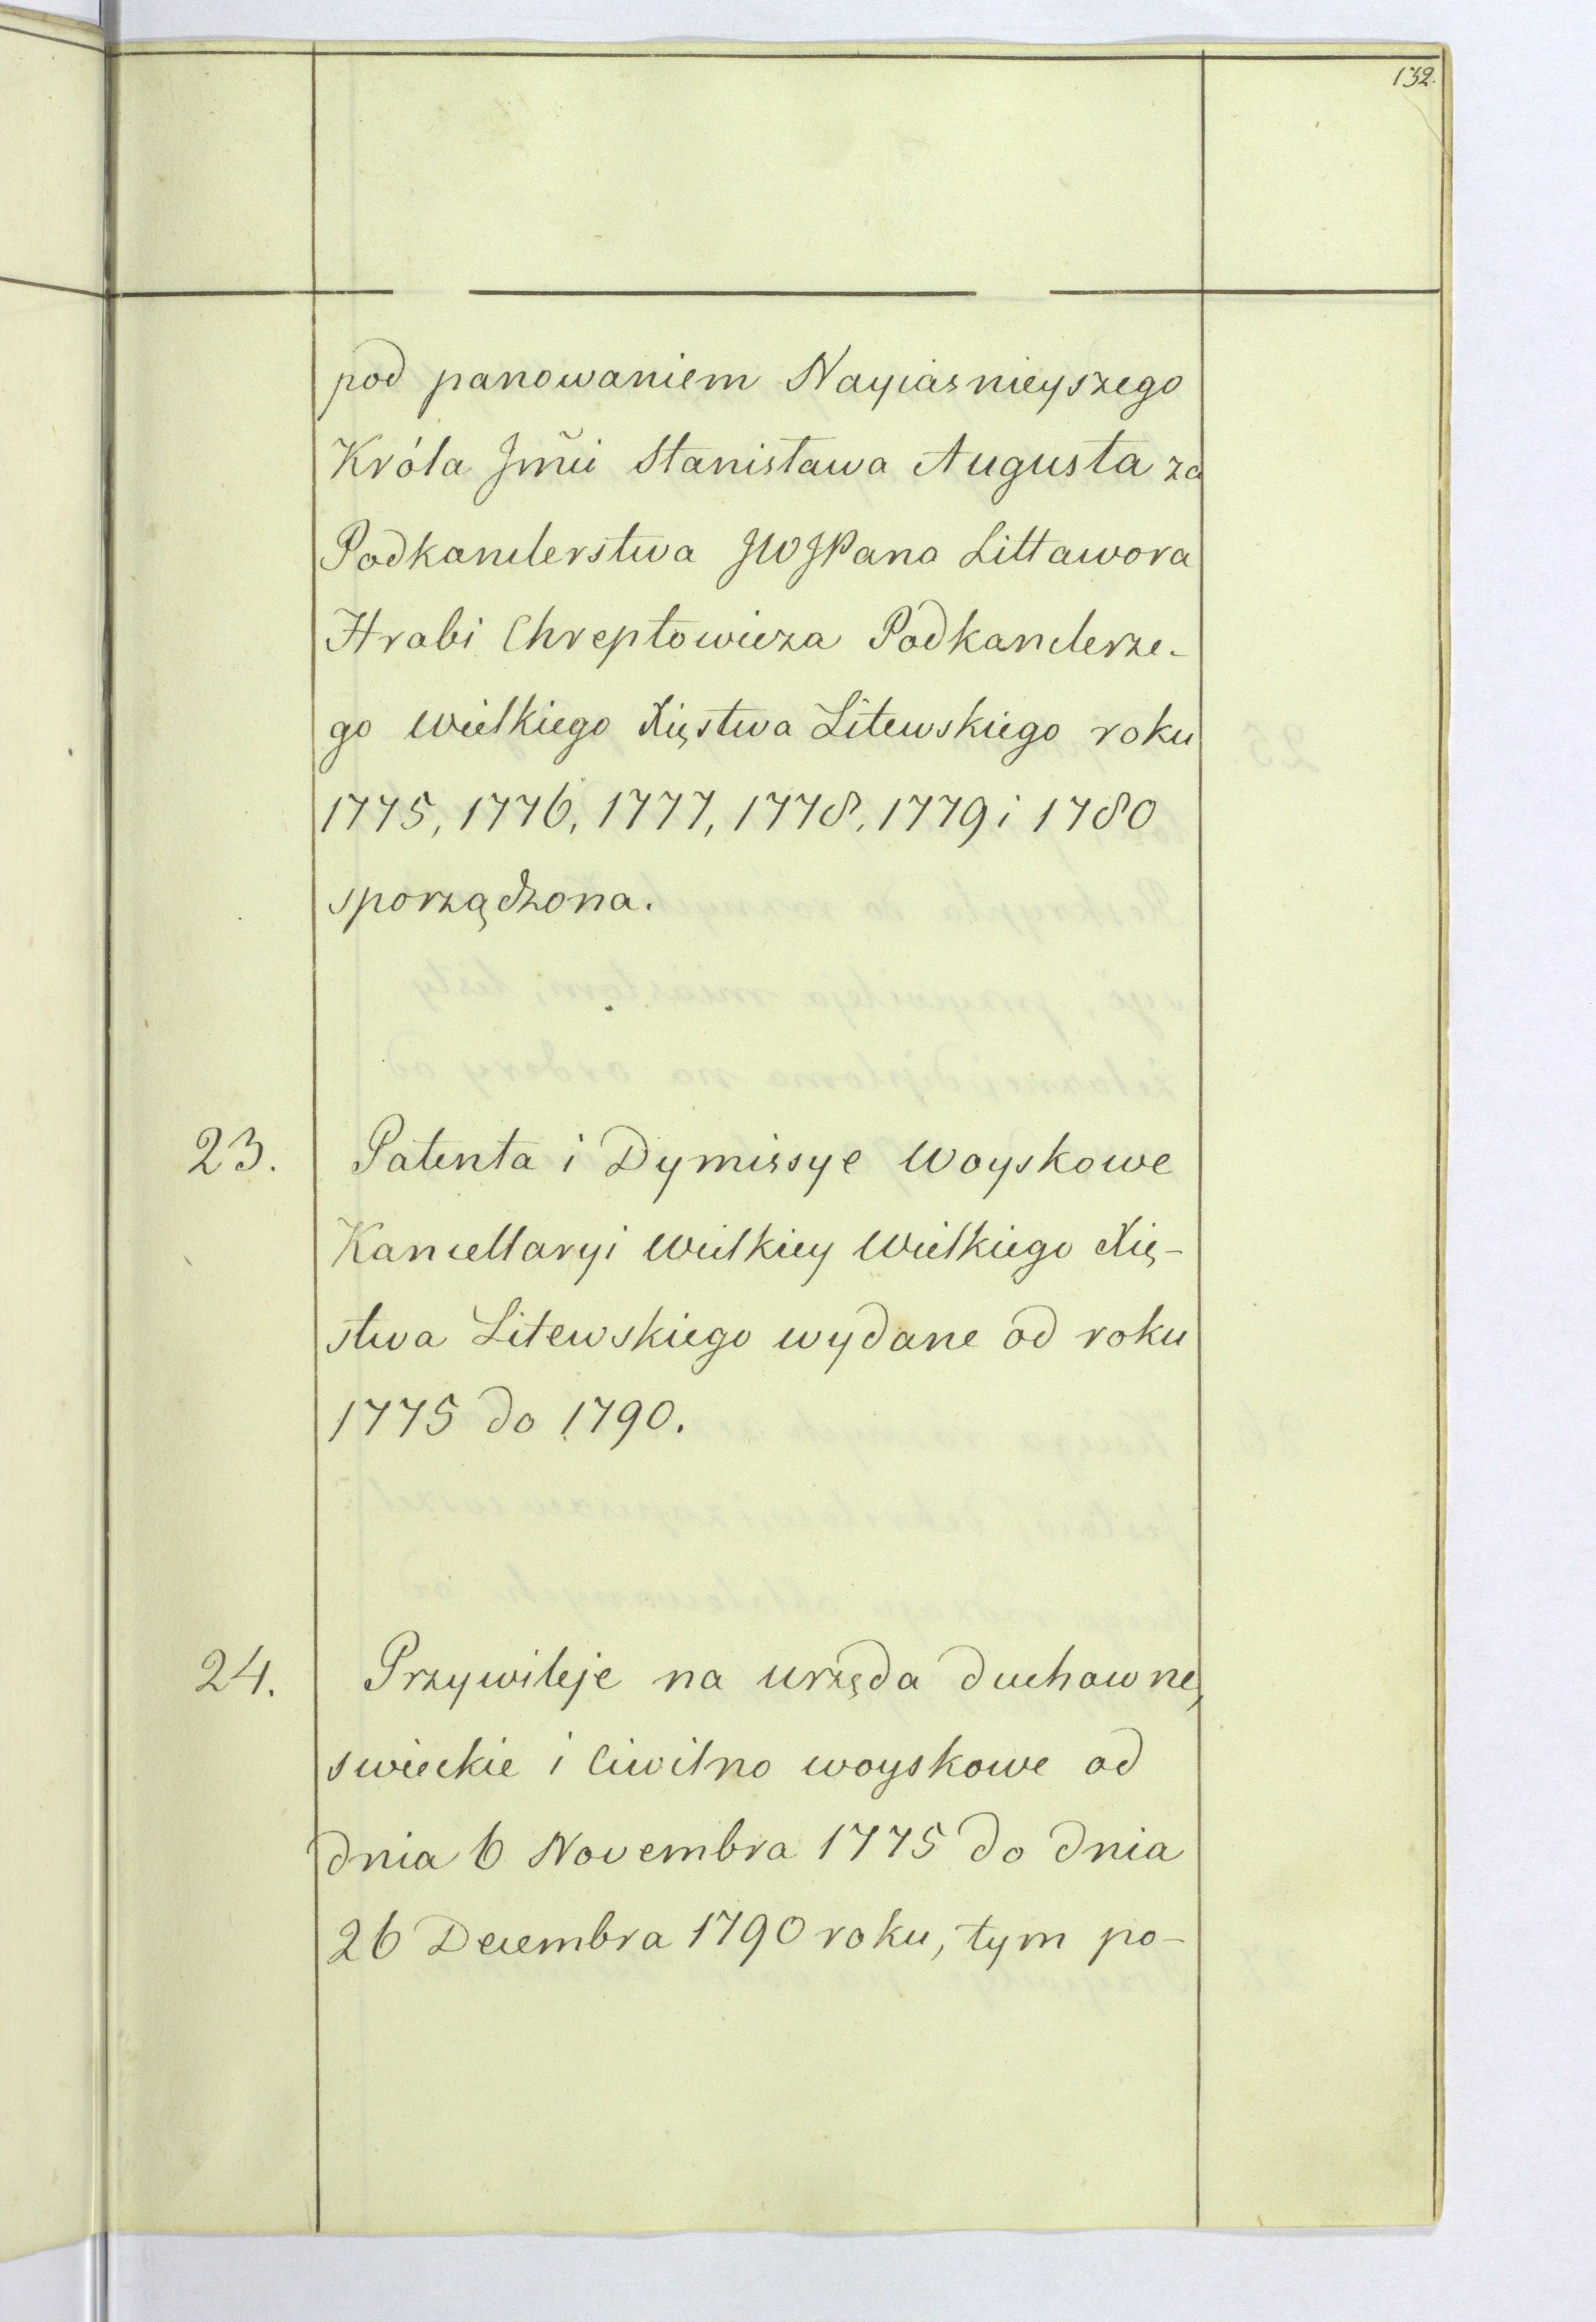 132.
pod panowaniem Nayiasnieyszego
Króla Jmci Stanisława Augusta za
Podkanclerstwa JWJPana Littawora
Hrabi Chreptowicza Podkanclerze-
go Wielkiego Xięstwa Litewskiego roku
1775, 1776, 1777, 1778, 1779 i 1780
sporządzona.
23. Patenta i Dymissye Woyskowe
Kancellaryi Wielkiey Wielkiego Xię-
stwa Litewskiego wydane od roku
1775 do 1790.
24. Przywileje na urzęda duchowne,
swieckie i Civilno woyskowe od
dnia 6 Novembra 1775 do dnia
26 Decembra 1790 roku, tym po-